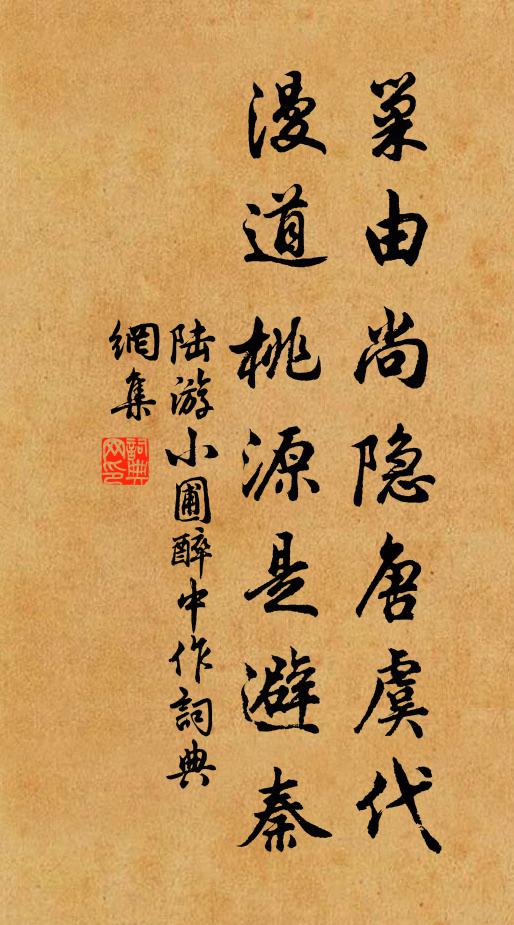 巢由尚隐唐虞代
漫道桃源是避秦
陆游小圃醉中作詞典
網集
詞典网印